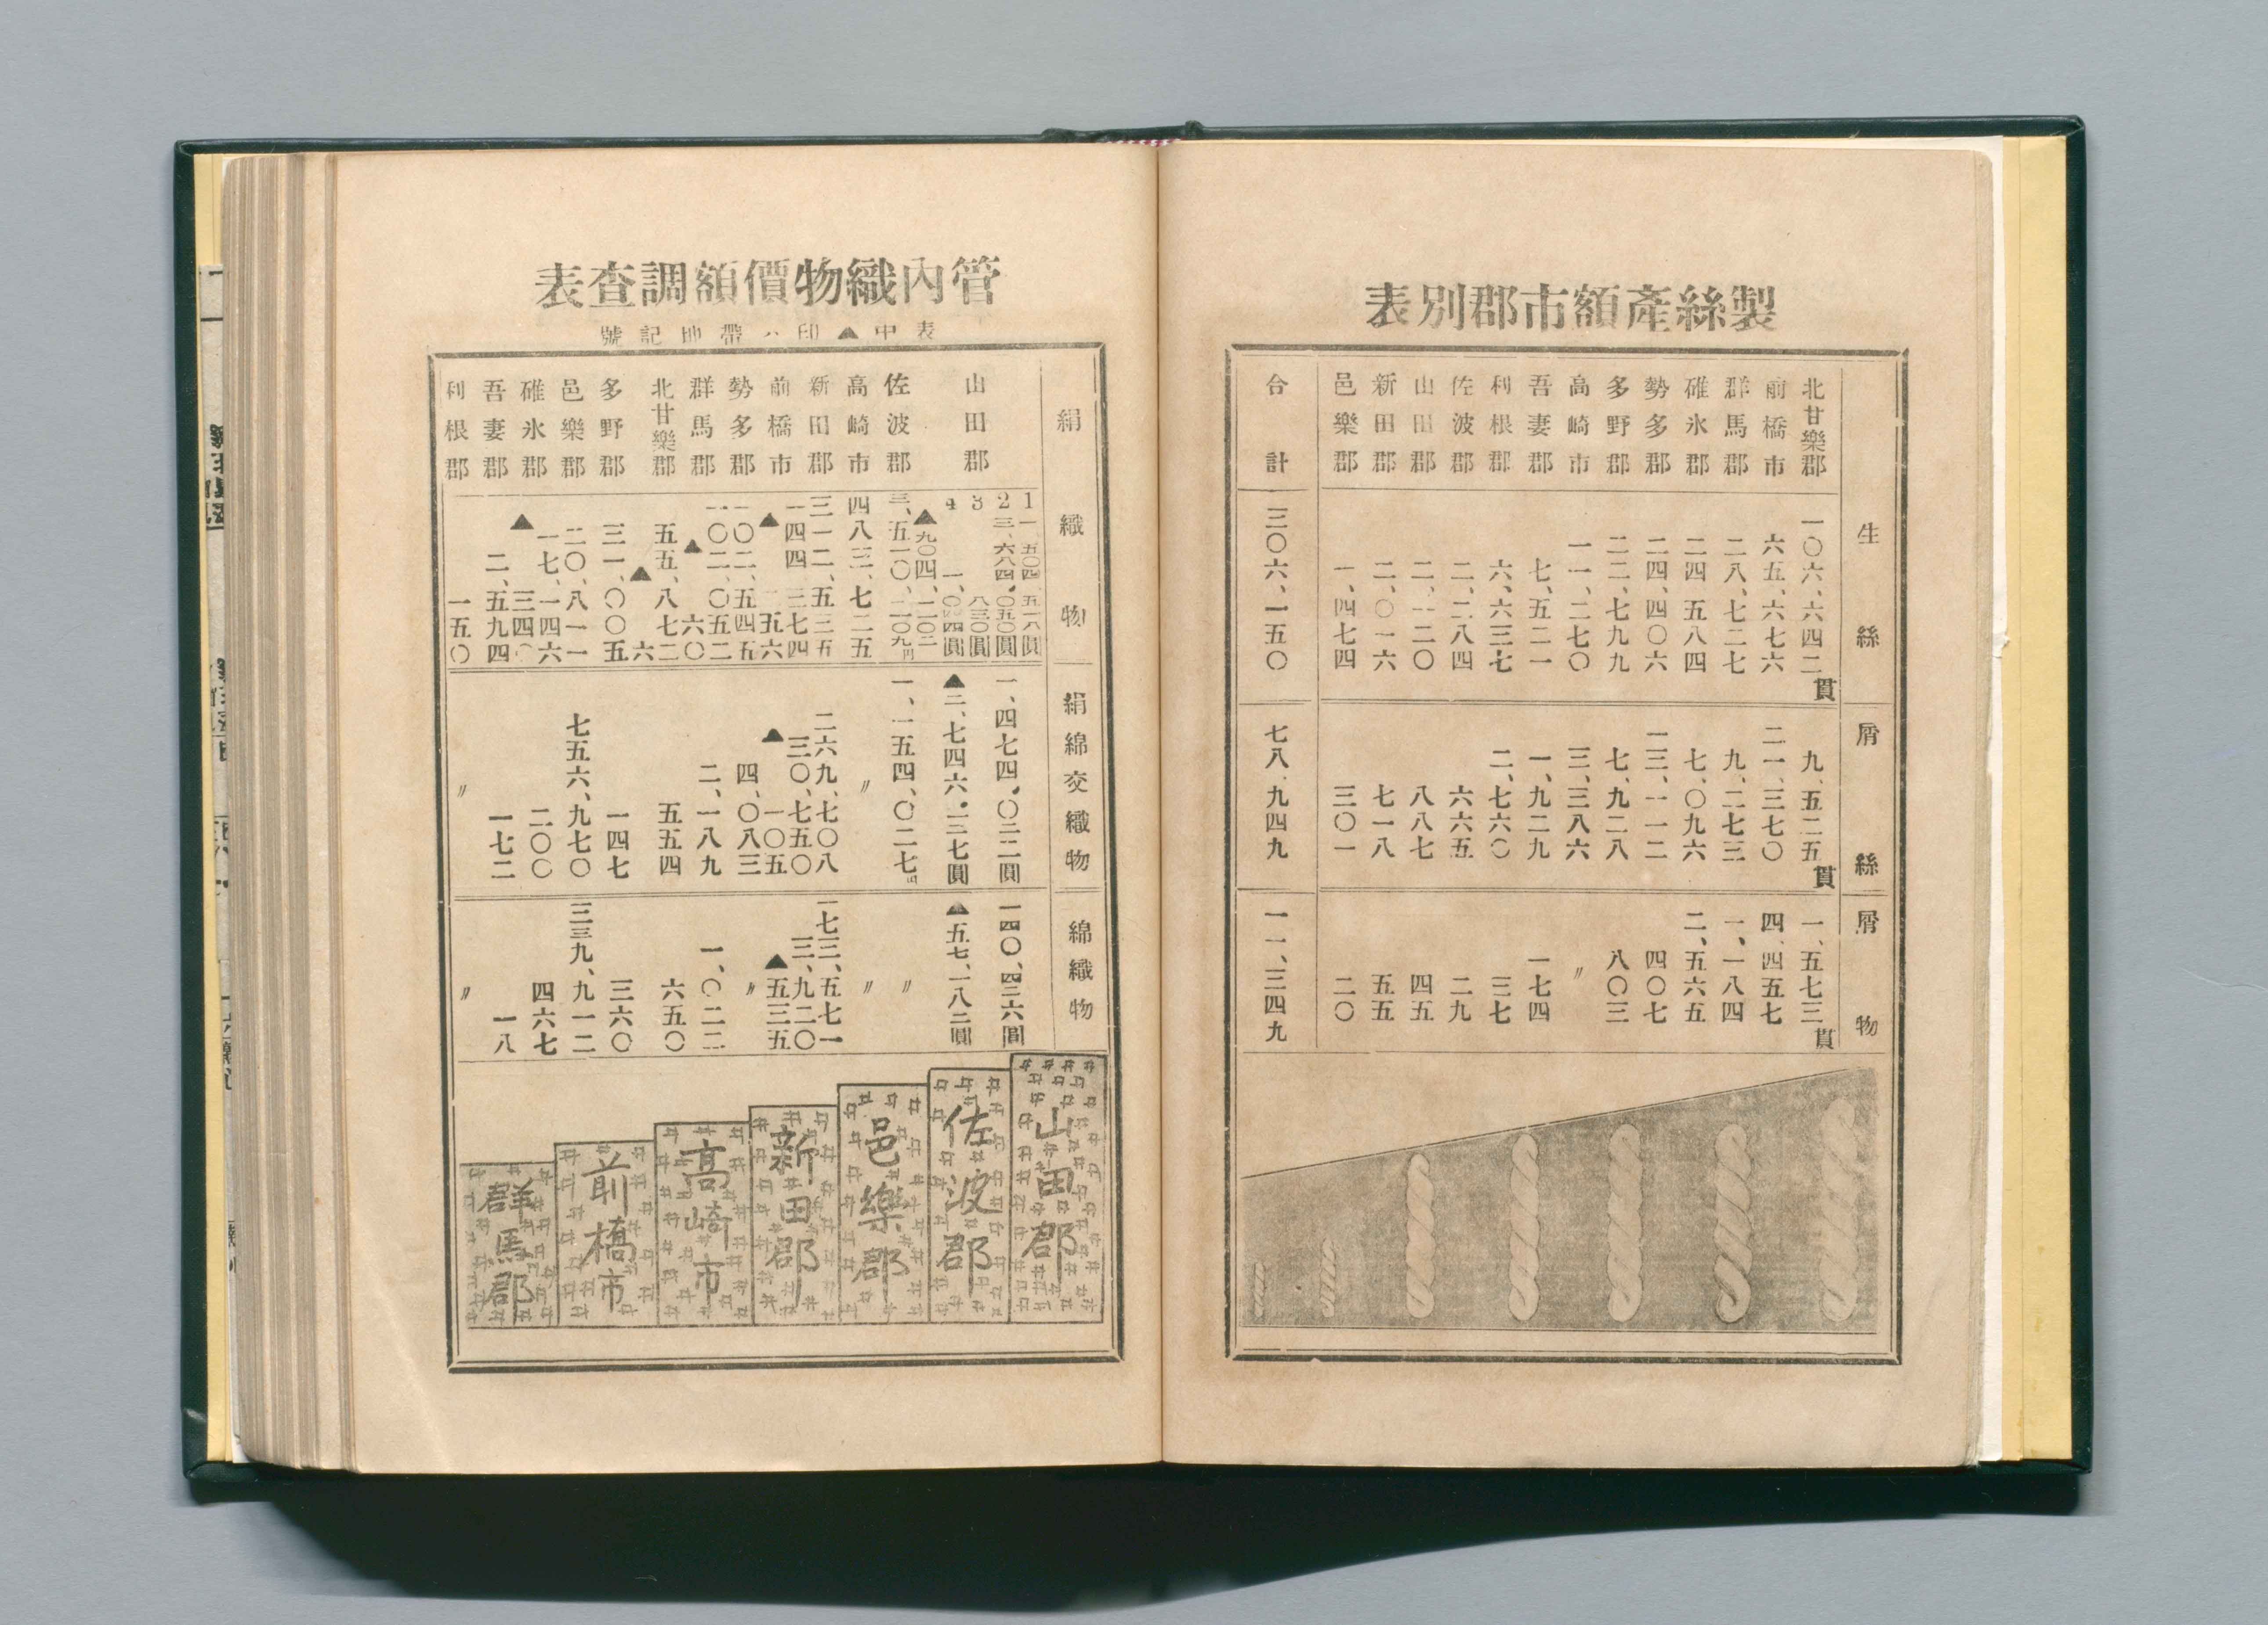 製絲產額市郡別表
生絲 屑絲 屑物
北甘樂郡 一〇六、六四二貫 九、五二五貫 一、五七三貫
前橋市 六五、六七六 二一、三七〇 四、四五七
群馬郡 二八、七二七 九、二七三 一、一八四
碓氷郡 二四 五八四 七、〇九六 二、五六五
勢多郡 二四、四〇六 一三、一一二 四〇七
多野郡 二二、七九九 七、九二八 八〇三
高崎市 一一、二七〇 三、三八六 〃
吾妻郡 七、五二一 一、九二九 一七四
利根郡 六、六三七 二、七六〇 三七
佐波郡 二、二八四 六六五 二九
山田郡 二、一二〇 八八七 四五
新田郡 二、〇一六 七一八 五五
邑樂郡 一、四七四 三〇一 二〇
合計 三〇六、一五〇 七八、九四九 一一、三四九
管內織物價額調查表
表中▲印ハ帶地記號
絹織物 絹綿交織物 綿織物
山田郡
1 一、五〇四、五一八圓
2 三、六八四、〇五〇圓 一、四七四、〇三二圓 一四〇、四三六圓
3 八三〇圓
4 一、〇四圓 ▲二、七四六、二三七圓 ▲五七、一八二圓
▲九〇四、二〇二
佐波郡 三、五一〇、二〇九円 一、一五四、〇二七円 〃
高崎市 四八三、七二五 〃 〃
新田郡 三一二、五三五 二六九、七〇八 一七三、五七一
前橋市 一四四、三七四 三〇、七五〇 三、九二〇
▲五六 ▲一〇五 ▲五三五
勢多郡 一〇二、五四五 四、〇八三 〃
群馬郡 一〇二、〇五二 二、一八九 一、〇二二
▲六〇
北甘樂郡 五五、八七二 五五四 六五〇
▲六
多野郡 三一、〇〇五 一四七 三六〇
邑樂郡 二〇、八一一 七五六、九七〇 三三九、九一二
碓氷郡 一七、一四六 二〇〇 四六七
▲三四〇
吾妻郡 二、五九四 一七二 一八
利根郡 一五〇 〃 〃
山田郡
佐波郡
邑樂郡
新田郡
高崎市
前橋市
群馬郡